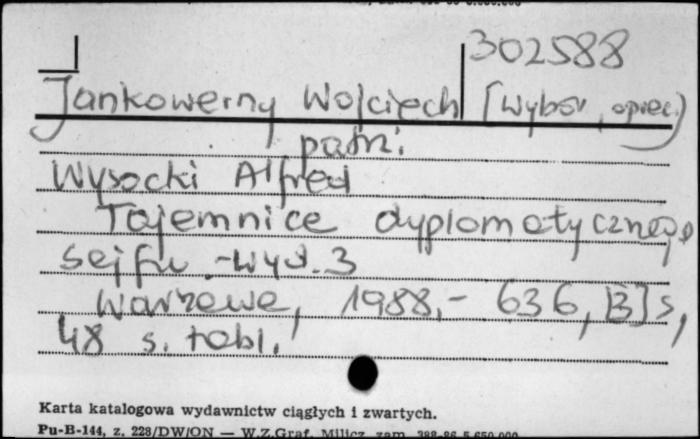 302588
Jankowerny Wojciech [wybór, oprac.)
patrz:
Wysocki Alfred
Tajemnice dyplomatycznego
sejfu.-Wyd.3
Warszawa, 1988,- 636, [3] s,
48 s. tabl.
Karta katalogowa wydawnictw ciągłych i zwartych.
Pu-B-144, z. 228/DW/ON — W.Z.Graf. Milicz, zam. 388-86 5.650.000